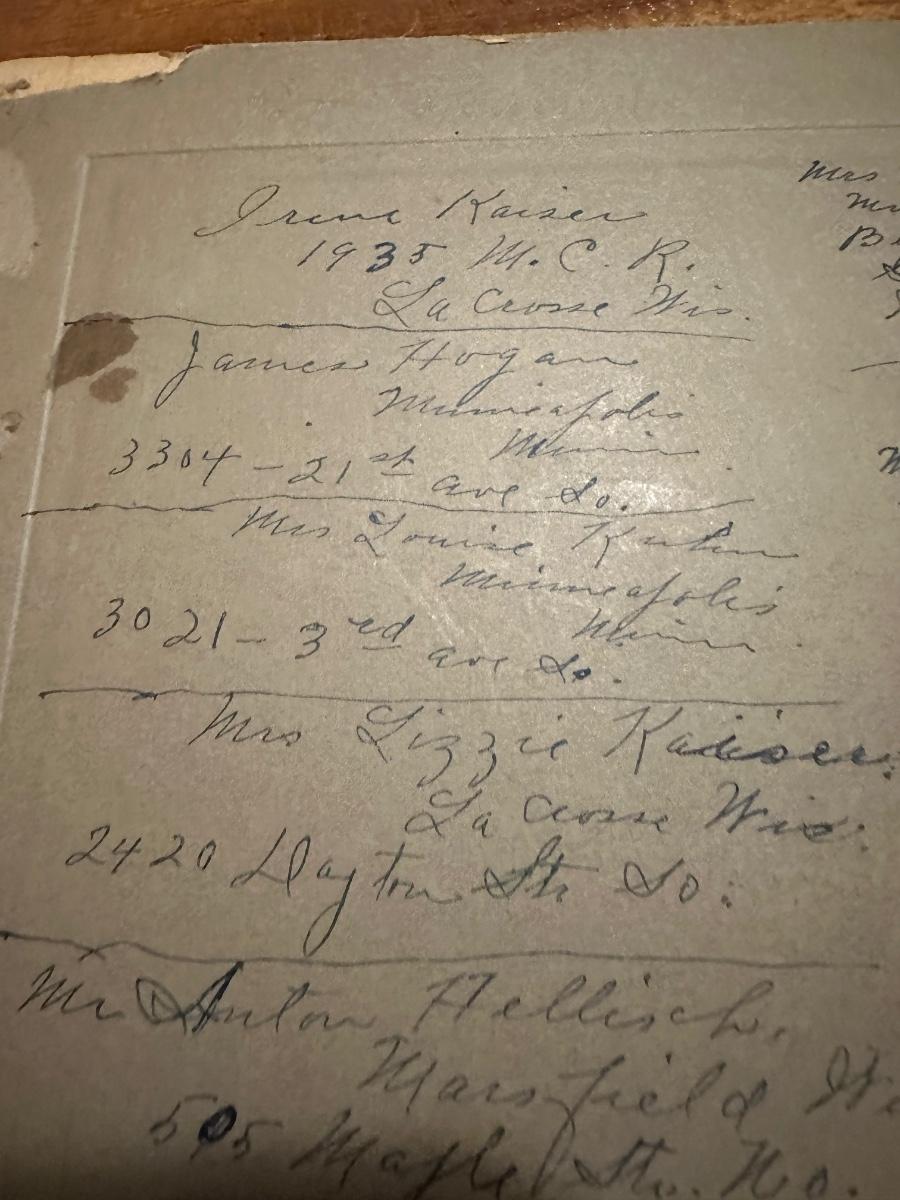 Irene Kaiser
1935 M. C. R.
La Crosse Wis.
James Hogan
Minneapolis
Minn.
3304 - 21st ave So.
Mrs Louise Kuhn
Minneapolis
Minn.
3021 - 3rd ave So.
Mrs Lizzie Kaiser
La Crosse Wis.
2420 Dayton Str So.
Mr Anton Hellisch.
Marsfield
505 Maple Str. No.
Mrs